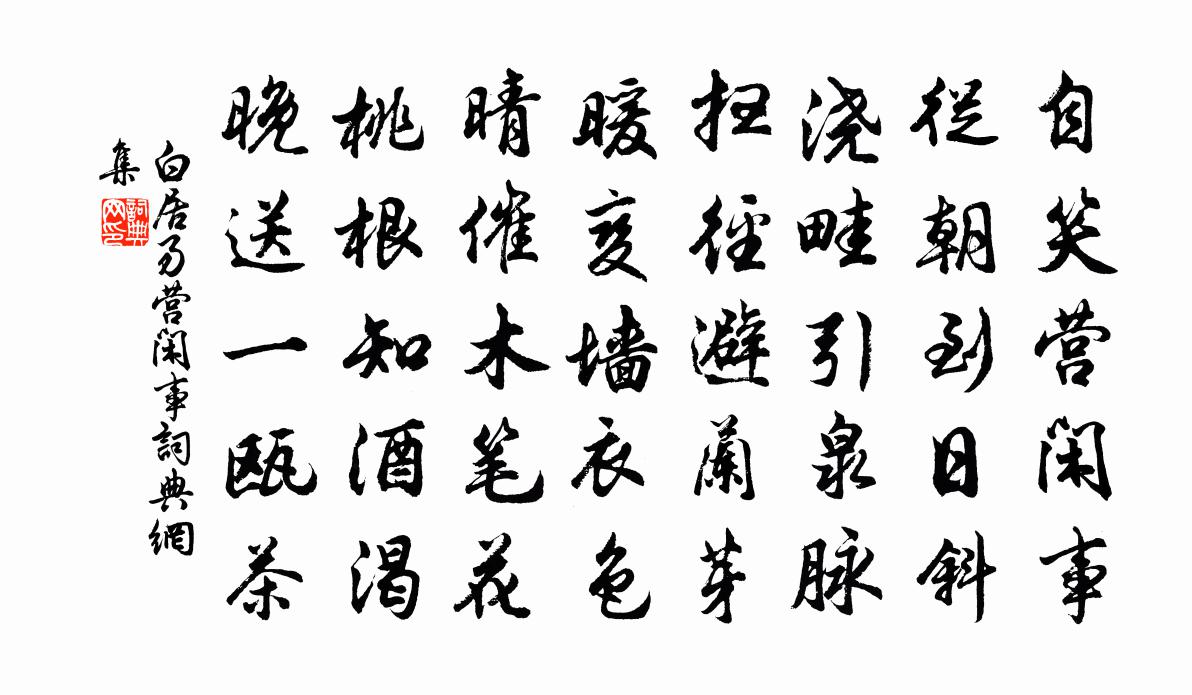 自笑营闲事
從朝到日斜
浇畦引泉脉
扫徑避蘭芽
暖变墙衣色
晴催木笔花
桃根知酒渴
晚送一瓯茶
白居易营闲事詞典網
集
詞典网印